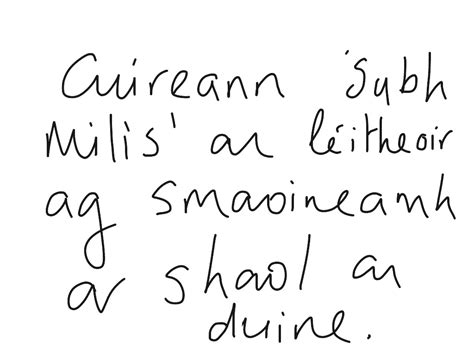 Cuireann 'Subh
Milis' an léitheoir
ag smaoineamh
ar shaol an
duine.